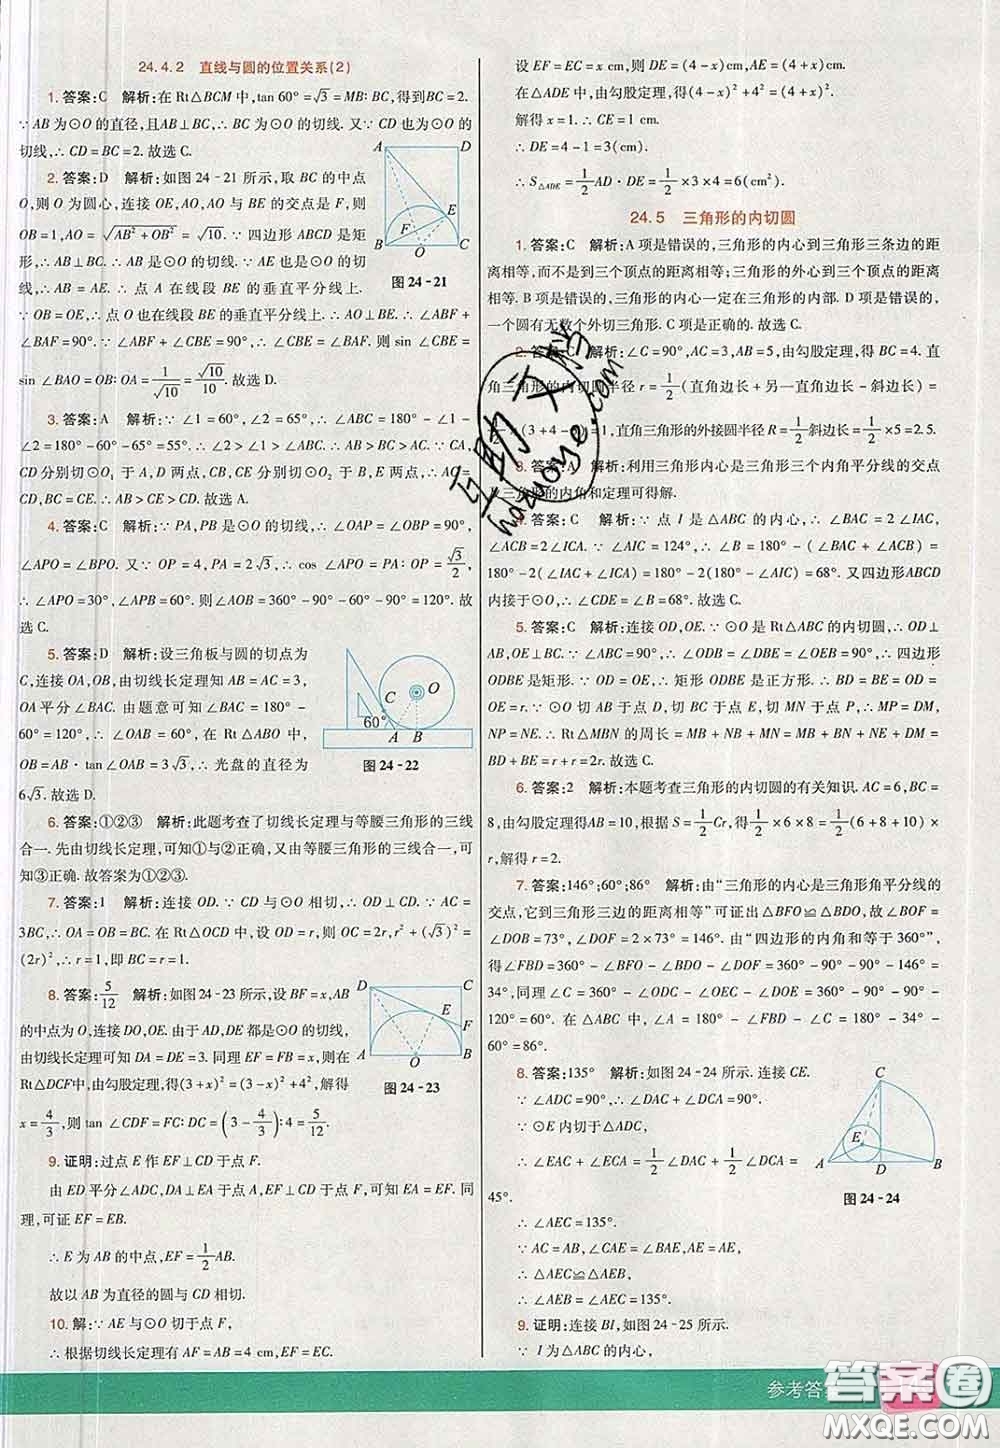 24.4.2 直线与圆的位置关系(2)
1. 答案:C 解析:在 Rt△BCM 中,tan 60°=√3=MB∶BC,得到BC=2.
∵ AB 为⊙O 的直径,且AB⊥BC,∴ BC 为⊙O 的切线. 又∵ CD 也为⊙O 的
切线,∴ CD=BC=2. 故选 C.
2. 答案:D 解析:如图 24-21 所示,取 BC 的中点
O,以 O 为圆心,连接 OE,AO,AO 与 BE 的交点是 F,则
OB=1,AO=√(AB²+OB²)=√10. ∵ 四边形 ABCD 是矩
形,∴ 点 A 在线段 BE 的垂直平分线上.
∵ OB=OE,∴ 点 O 也在线段 BE 的垂直平分线上. ∴ ∠ABF+∠CBE=90°,∠ABF+
∠BAF=90°. ∴ ∠BAF=∠CBE. 则 sin ∠CBE=sin
∠BAO=OB∶OA=1/√10=√10/10. 故选 D.
A
D
E
F
B
O
C
图 24-21
3. 答案:A 解析:∵ ∠1=60°,∠2=65°,∴ ∠ABC=180°-∠1-
∠2=180°-60°-65°=55°. ∴ ∠2>∠1>∠ABC. ∴ AB>BC>AC. ∵ CA,
CD 分别切⊙O 于 A,D 两点,CB,CE 分别切⊙O 于 B,E 两点,∴ AC=
CD,BC=CE. ∴ AB>CE>CD. 故选 A.
4. 答案:C 解析:∵ PA,PB 是⊙O 的切线,∴ ∠OAP=∠OBP=90°,
∠APO=∠BPO. 又∵ OP=4,PA=2√3,∴ cos ∠APO=PA∶OP=√3/2,
∴ ∠APO=30°,∠APB=60°. 则∠AOB=360°-90°-90°-60°=120°. 故
选 C.
5. 答案:D 解析:设三角板与圆的切点为
C,连接 OA,OB,由切线长定理知 AB=AC=3,
OA平分∠CAB. 由题意可知∠CAB=180°-
60°=120°,∴ ∠OAB=60°. 在 Rt△ABO 中,
OB=AB·tan∠OAB=3√3,∴ 光盘的直径为
6√3. 故选 D.
C
O
60°
A
B
图 24-22
6. 答案:①②③ 解析:此题考查了切线长定理与等腰三角形的三线
合一. 先由切线长定理,可知①与②正确,又由等腰三角形的三线合一,可
知③正确. 故答案为①②③.
7. 答案:1 解析:连接 OD. ∵ CD 与⊙O 相切,∴ OD⊥CD. ∵ AC=
3BC,∴ BC=OB. 在 Rt△OCD 中,设 OD=r,则 OC=2r,r²+(√3)²=
(2r)²,∴ r=1,即 BC=r=1.
8. 答案:5/12 解析:如图 24-23 所示,设 BF=x,AB
的中点为 O,连接 DO,OE. 由于 AD,DE 都是⊙O 的切线,
由切线长定理可知 DA=DE=3. 同理 EF=FB=x. 在
Rt△DCF中,由勾股定理,得(3+x)²=(3-x)²+4²,解得
x=4/3,则 tan ∠CDF=FC∶DC=(3-4/3)∶4=5/12.
D
C
E
F
A
O
B
图 24-23
9. 证明:过点 E 作 EF⊥CD 于点 F.
由 ED 平分∠ADC,DA⊥EA 于点 A,EF⊥CD 于点 F,可知 EA=EF. 同
理,可证 EF=EB.
∴ E 为 AB 的中点,EF=1/2AB.
故以 AB 为直径的圆与 CD 相切.
10. 解:∵ AE 与⊙O 切于点 F,
∴ 根据切线长定理有 AF=AB=4 cm,EF=EC.
设 EF=EC=x cm,则 DE=(4-x)cm,AE=(4+x)cm.
在△ADE 中,由勾股定理,得(4-x)²+4²=(4+x)².
解得 x=1. ∴ CE=1 cm.
∴ DE=4-1=3(cm).
∴ S△ADE=1/2AD·DE=1/2×3×4=6(cm²).
24.5 三角形的内切圆
1. 答案:C 解析:A 项是错误的,三角形的内心到三角形三条边的距
离相等,而不是到三个顶点的距离相等;三角形的外心到三个顶点的距离
相等. B 项是错误的,三角形的内心一定在三角形的内部. D 项是错误的,
一个圆有无数个外切三角形. C 项是正确的. 故选 C.
2. 答案:C 解析:∠C=90°,AC=3,AB=5,由勾股定理,得 BC=4. 直
角三角形的内切圆半径 r=1/2(直角边长+另一直角边长-斜边长)=
×(3+4- 1,直角三角形的外接圆半径 R=1/2斜边长=1/2×5=2.5.
3. 答案:A 解析:利用三角形内心是三角形三个内角平分线的交点
及三角形的内角和定理可得解.
4. 答案:C 解析:∵ 点 I 是△ABC 的内心,∴ ∠BAC=2∠IAC,
∠ACB=2∠ICA. ∵ ∠AIC=124°,∴ ∠B=180°-(∠BAC+∠ACB)=
180°-2(∠IAC+∠ICA)=180°-2(180°-∠AIC)=68°. 又四边形ABCD
内接于⊙O,∴ ∠CDE=∠B=68°. 故选 C.
5. 答案:C 解析:连接 OD,OE. ∵ ⊙O 是 Rt△ABC 的内切圆,∴ OD⊥
AB,OE⊥BC. 又∵ ∠ODB=∠DBE=∠OEB=90°,∴ 四边形
ODBE 是矩形. ∵ OD=OE,∴ 矩形 ODBE 是正方形. ∴ BD=BE=OD=
OE=r. ∵ ⊙O 切 AB 于点 D,切 BC 于点 E,切 MN 于点 P,∴ MP=DM,
NP=NE. ∴ Rt△MBN 的周长=MB+NB+MN=MB+BN+NE+DM=
BD+BE=r+r=2r. 故选 C.
6. 答案:2 解析:本题考查三角形的内切圆的有关知识. AC=6,BC=
8,由勾股定理得AB=10,根据 S=1/2Cr,得1/2×6×8=1/2(6+8+10)×
r,解得 r=2.
7. 答案:146°;60°;86° 解析:由“三角形的内心是三角形角平分线的
交点,它到三角形三边的距离相等”可证出△BFO≌△BDO,故∠BOF=
∠DOB=73°,∠DOF=2×73°=146°. 由“四边形的内角和等于360°”,
得∠FBD=360°-∠BFO-∠BDO-∠DOF=360°-90°-90°-146°=
34°,同理∠DCE=360°-∠OEC-∠ODC-∠DOE=360°-90°-90°-
120°=60°. 在△ABC 中,∠A=180°-∠FBD-∠DCE=180°-34°-
60°=86°.
8. 答案:135° 解析:如图 24-24 所示. 连接 CE.
∵ ∠ADC=90°,∴ ∠DAC+∠DCA=90°.
∵ ⊙E 内切于△ADC,
∴ ∠EAC+∠ECA=1/2∠DAC+1/2∠DCA=
45°.
∴ ∠AEC=135°.
∵ AC=AB,∠CAE=∠BAE,AE=AE,
∴ △AEC≌△AEB.
∴ ∠AEB=∠AEC=135°.
C
E
A
D
B
图 24-24
9. 证明:连接 BI,如图 24-25 所示.
∵ I为△ABC 的内心,
互助文档
hdzuoye.com
参考答案
答案圈
MXQE.COM